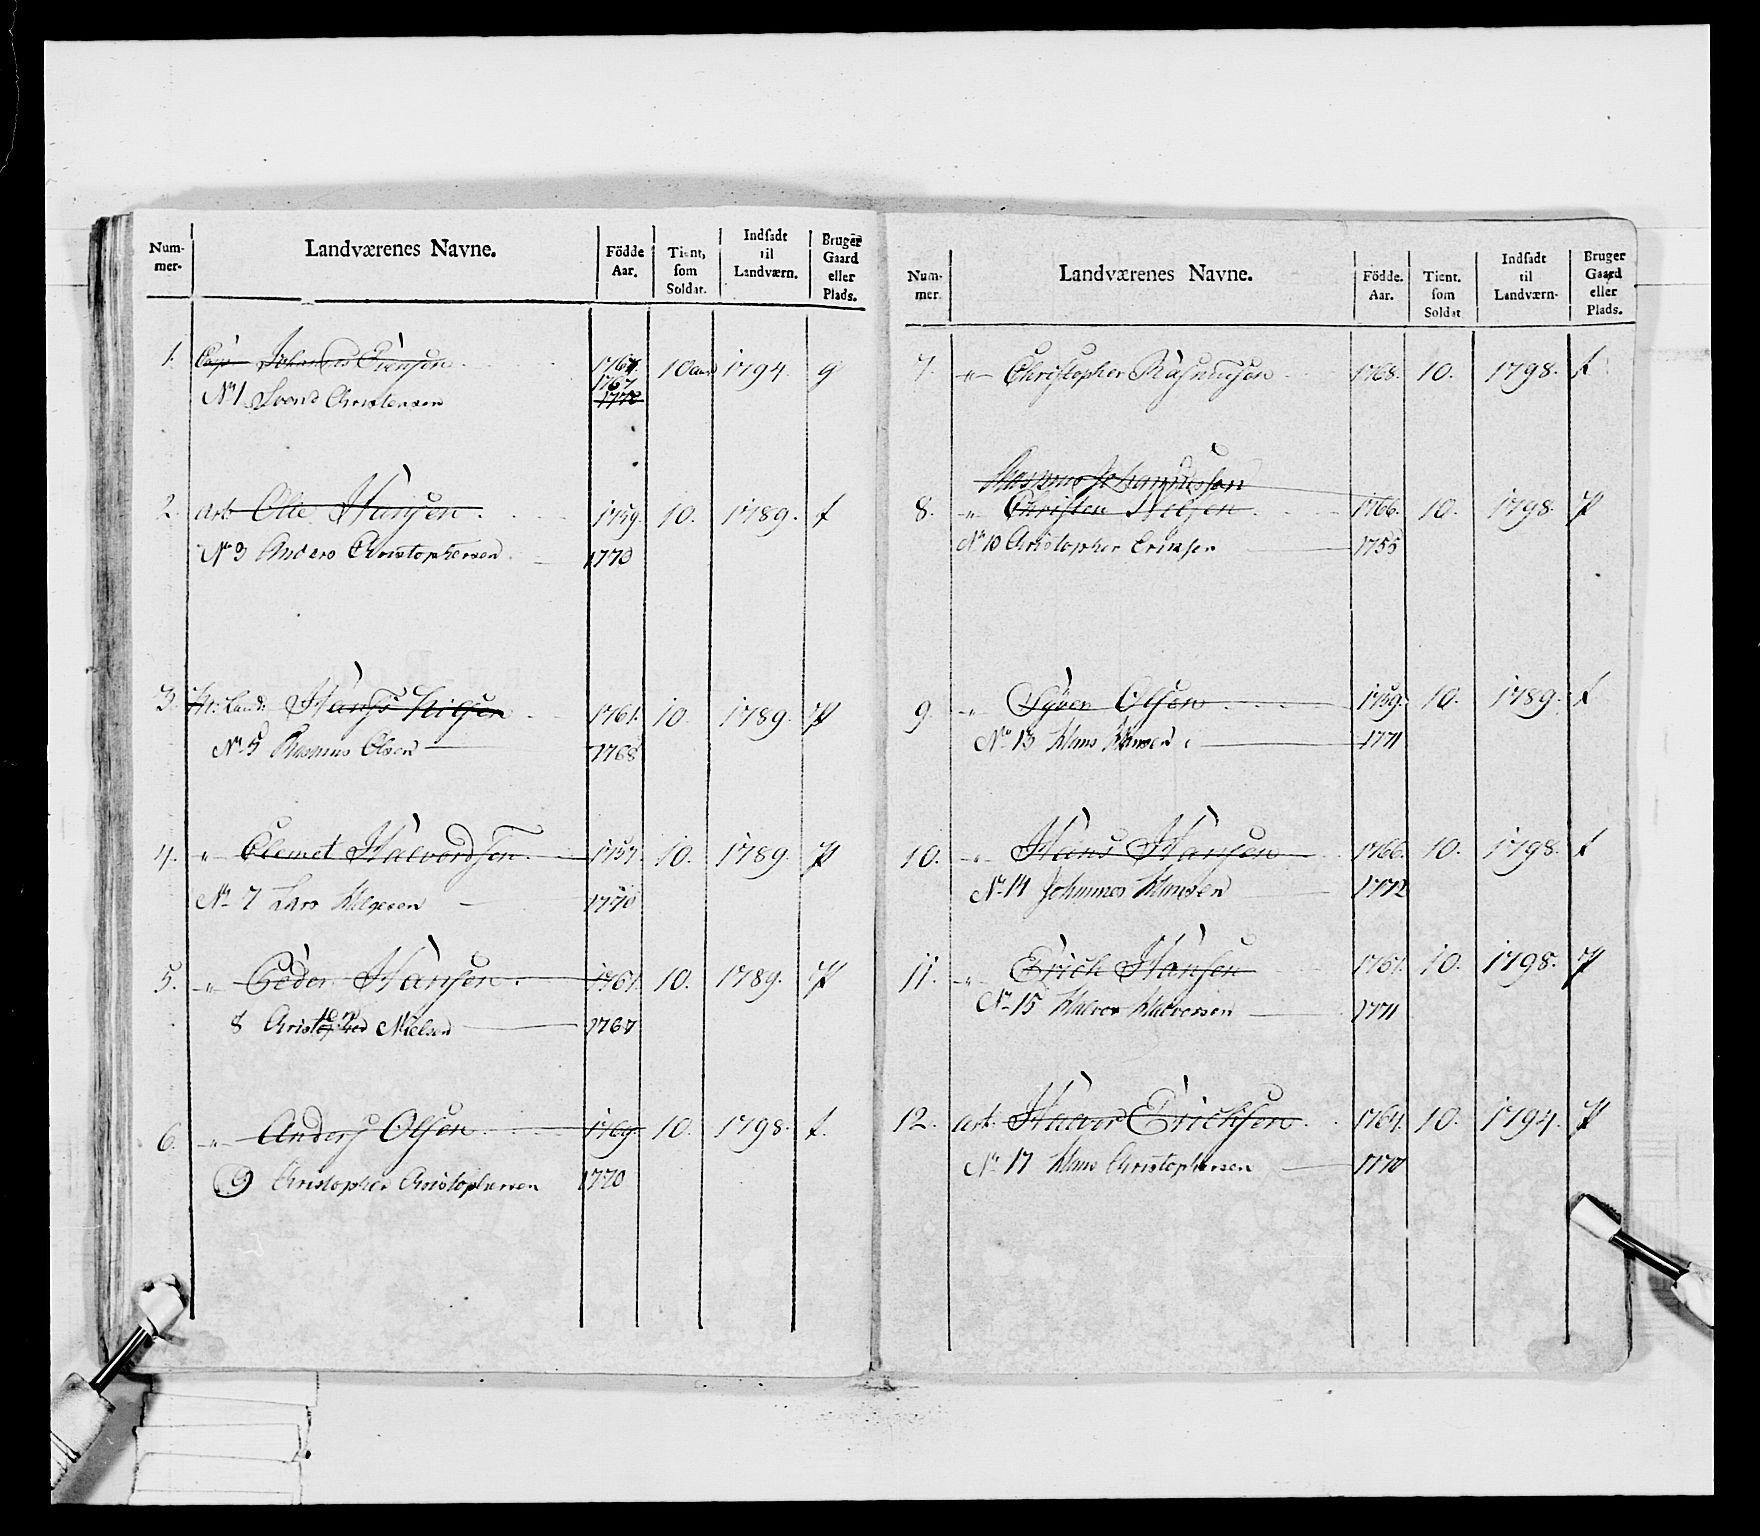 Num-
mer.
Landværenes Navne.
Födde
Aar.
Tient,
som
Soldat.
Indsadt
til
Landværn.
Bruger
Gaard
eller
Plads.
1. Johannes 1764. 10 1794. g
1767
1770
No 1 Svend Christensen
2. Art: Olle Hansen. 1759. 10. 1789. f
No 3 Anders Christophersen 1773
3. Hans Nilsen 1761. 10. 1789. P
No 5 Rasmus Olsen 1768
4. " Clemet Halvordsen. 1757. 10. 1789. P
No 7 Lars Helgesen 1770
5. " Peder Hansen. 1761. 10. 1789. P
8 Nielsen 1767
6. " Anders Olsen 1769. 10. 1798. f.
9 Christopher Christophersen 1770
Num-
mer
Landværenes Navne.
Födde.
Aar.
Tient.
som
Soldat
Indsadt
til
Landværn.
Bruger
Gaard
eller
Plads.
7. " Christopher Rasmusen 1768. 10. 1798. f
Rasmus Johannessen
8. " Christen Nilsen. 1766. 10. 1798. P
No 10 Christopher 1755
9. " Syver Olsen 1759. 10. 1789. f
No 13 Hans Hansen 1771
10. " Hans Hansen 1766. 10. 1798. f
No 14 Johannes Hansen 1772
11. " Erich Hansen 1761. 10. 1798. P
No 15 Halvor Halvorsen 1771
12. Art. Halvor Erichsen. 1764. 10. 1794. P
No 17 Hans Christophersen 1770